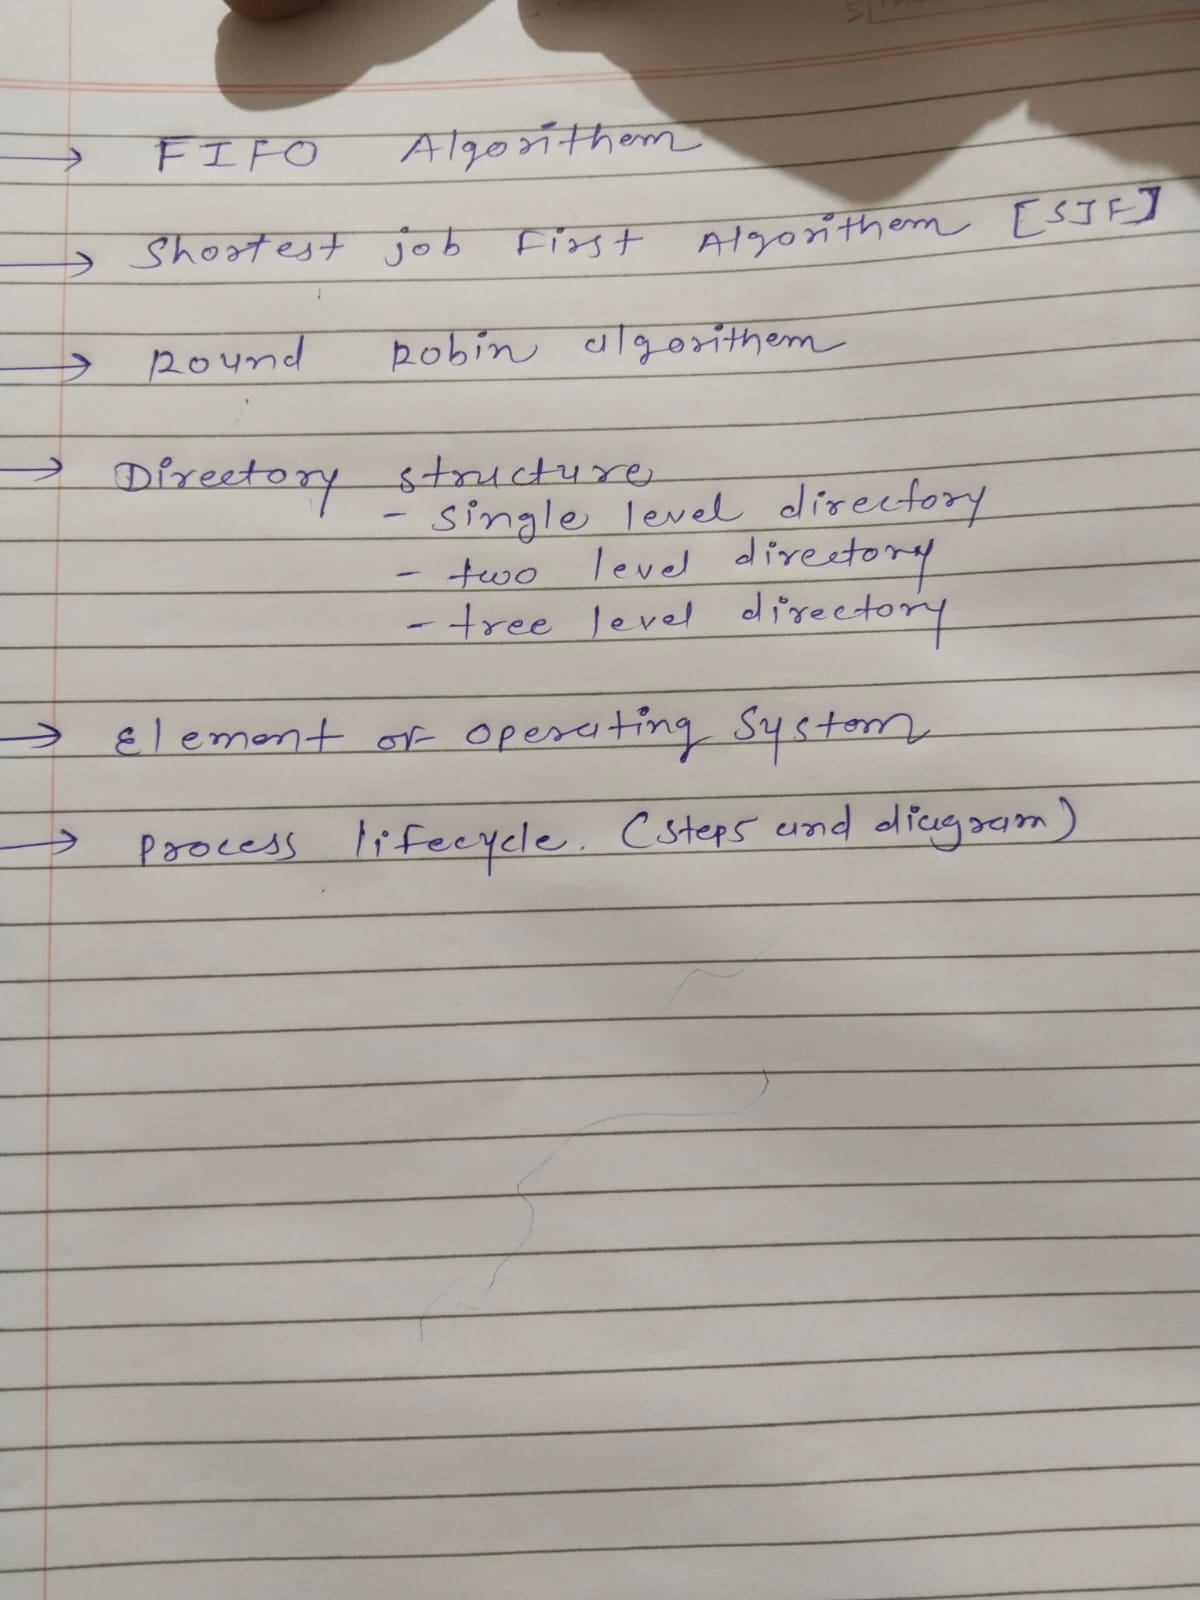 → FIFO Algorithem
→ Shortest job First Algorithem [SJF]
→ Round Robin algorithem
→ Directory structure
- single level directory
- two level directory
- tree level directory
→ Element of operating System
→ process lifecycle. (steps and diagram)